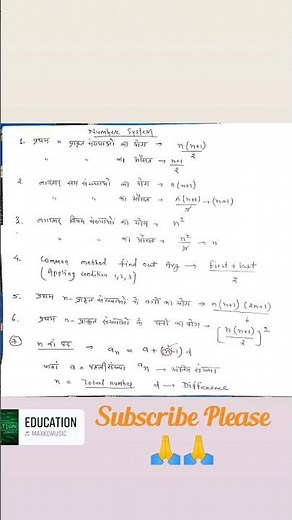 Number System
1. प्रथम n प्राकृत संख्याओं का योग → n(n+1)/2
" " " का औसत → n+1/2
2. लगातार सम संख्याओं का योग → n(n+1)
" " का औसत → n(n+1)/n → (n+1)
3. लगातार विषम संख्याओं का योग → n²
" " का औसत → n²/n → n
4. Common method find out Avg → first + last/2
(Applying condition 1, 2, 3)
5. प्रथम n- प्राकृत संख्याओं के वर्गों का योग → n(n+1)(2n+1)/6
6. प्रथम n- प्राकृत संख्याओं के घनों का योग → [n(n+1)/2]²
7 n वां पद ⇒ aₙ = a + (n-1) d
जहां a = पहली संख्या aₙ → अंतिम संख्या
n = Total number d → Difference
EDUCATION
MAXKOMUSIC
Subscribe Please
🙏🙏